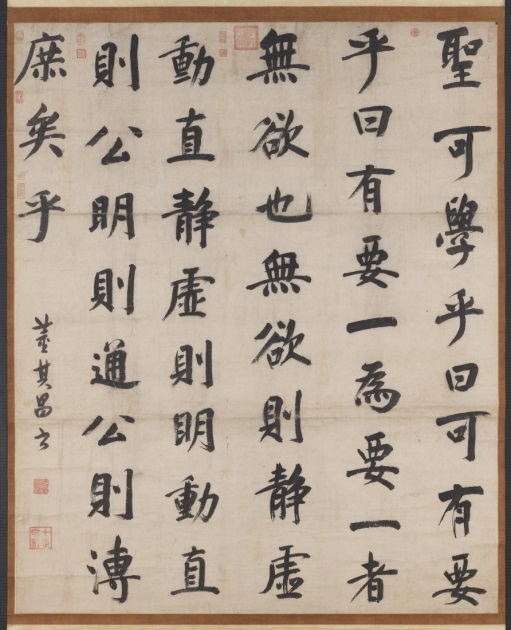 聖可學乎曰可有要
乎曰有要一為要一者
無欲也無欲則静虛
動直静虛則明動直
則公明則通公則溥
庶矣乎
董其昌書